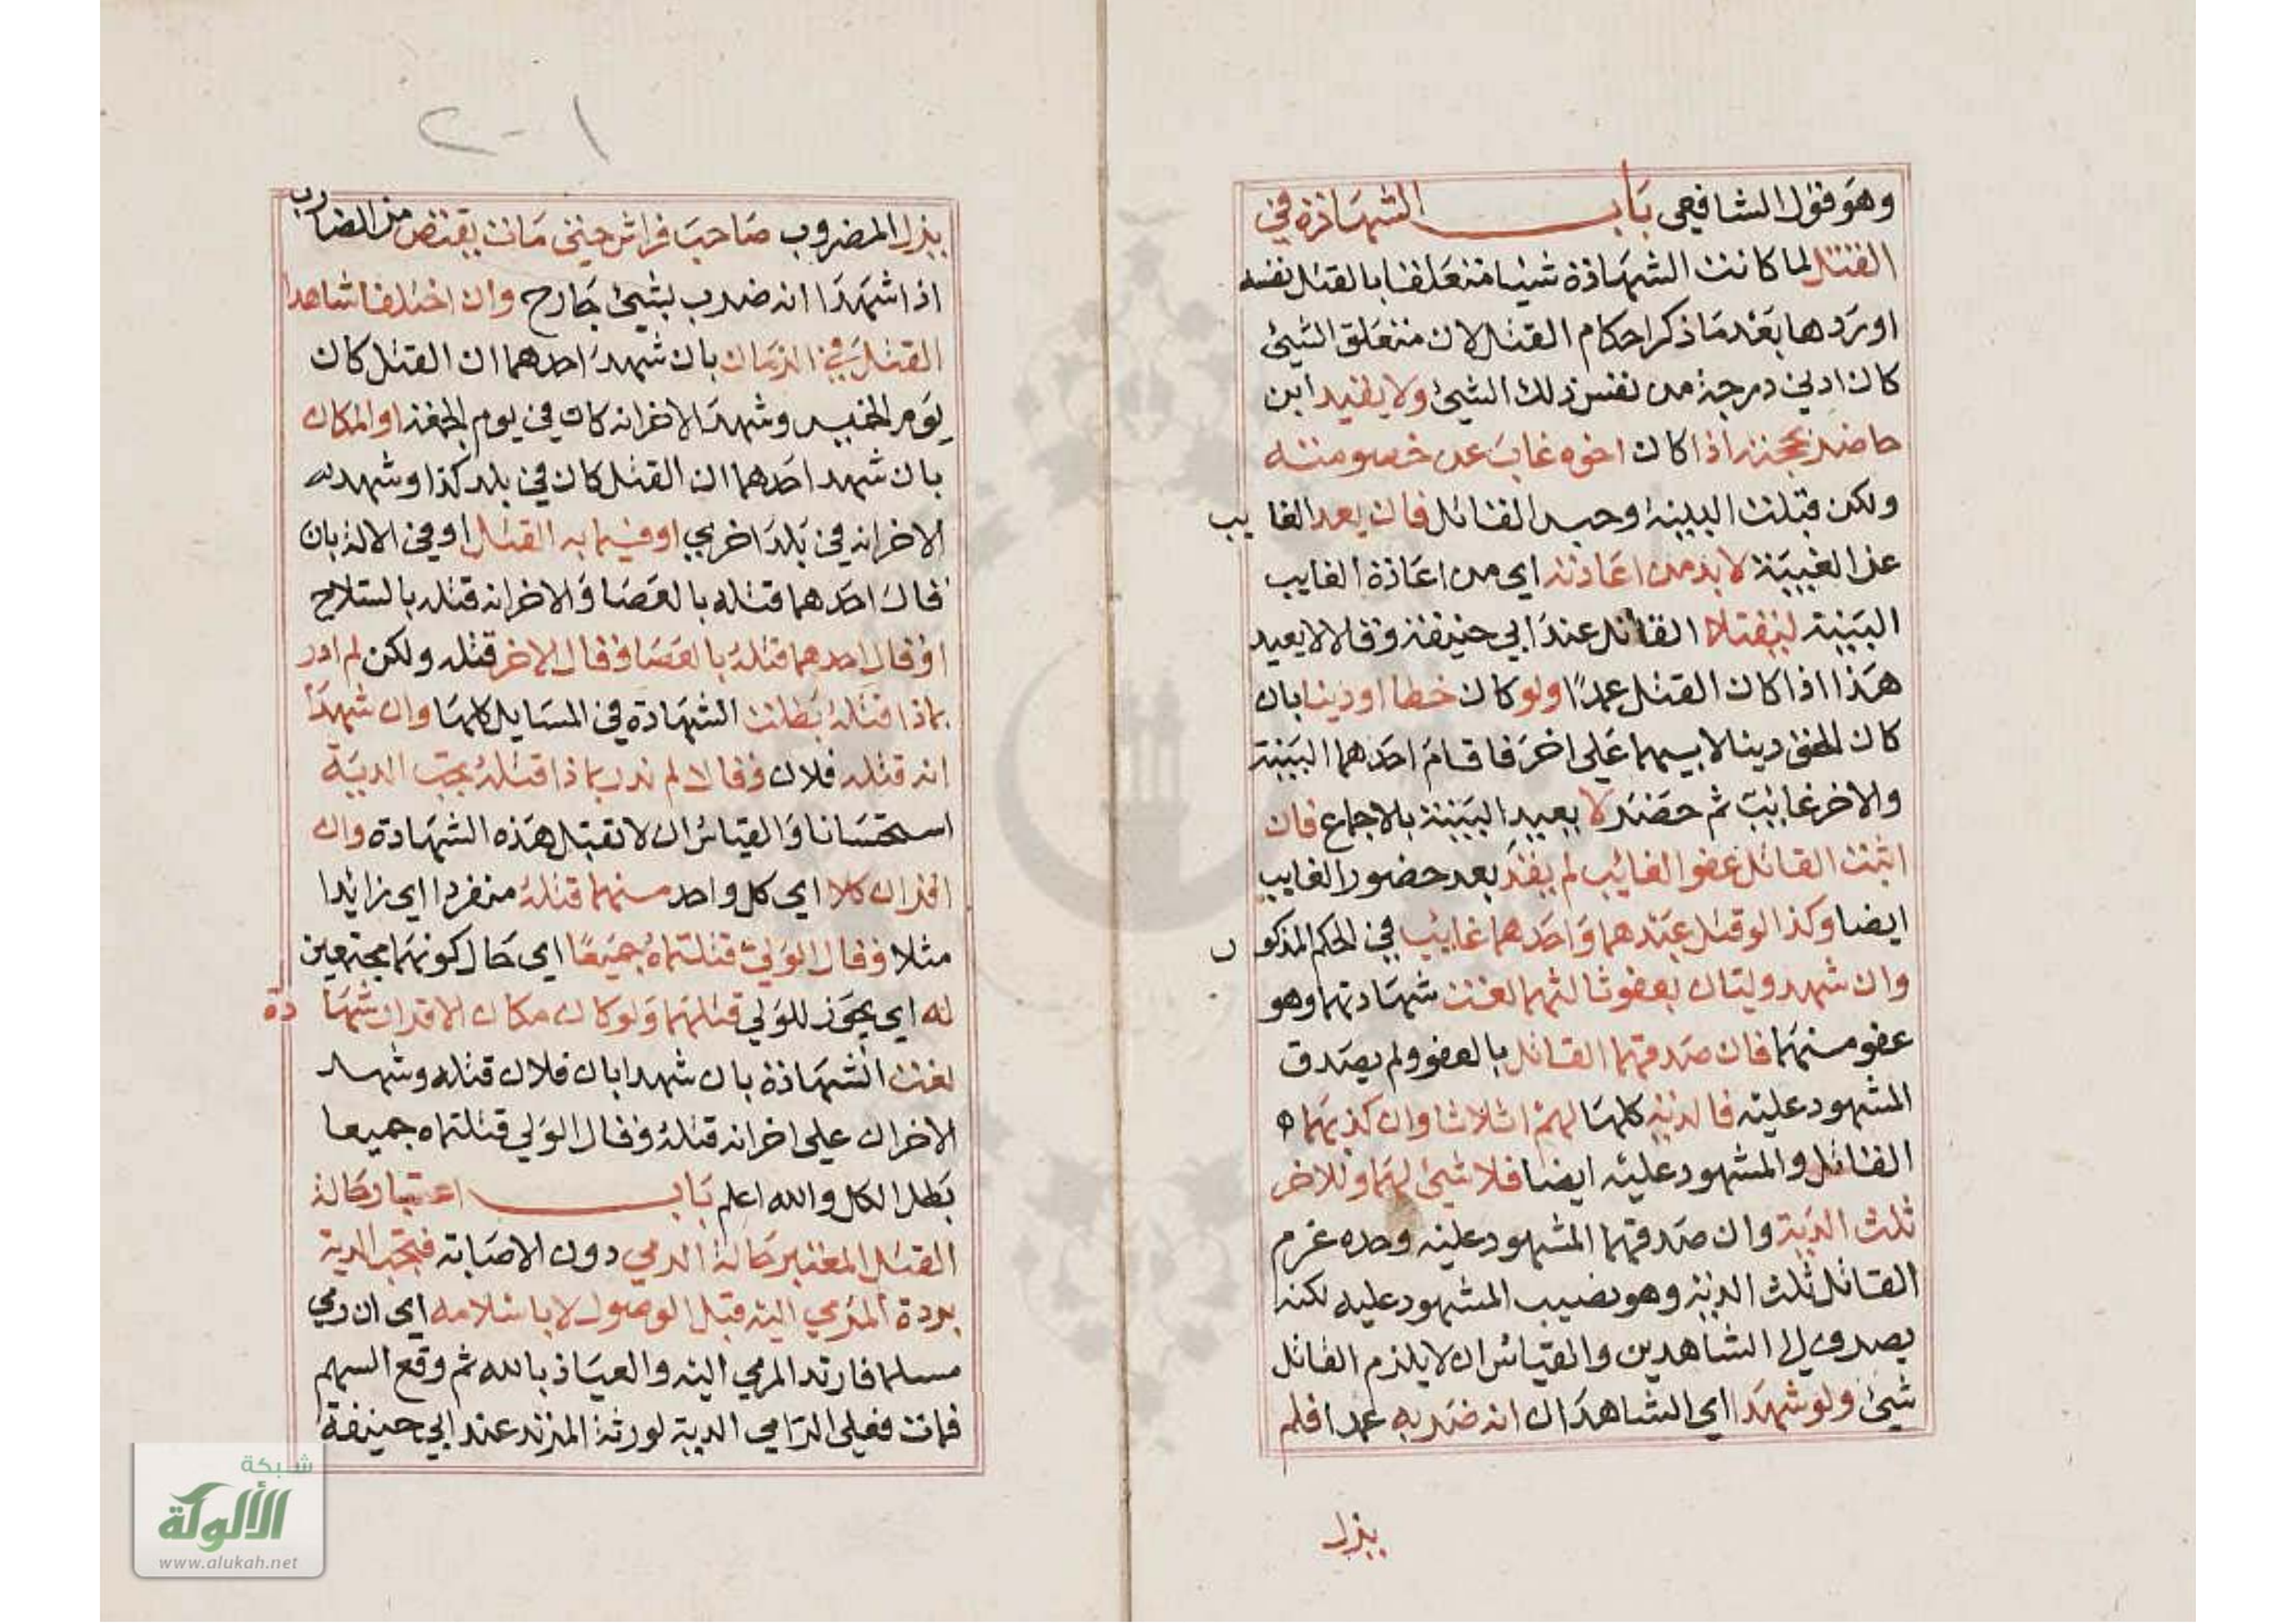 وهو قول الشافعي باب الشهادة في
القتل لما كانت الشهادة شيئا متعلقا بالقتل نفسه
اوردها بعد ما ذكر احكام القتل لان متعلق الشيئ
كان ادني درجة من نفس ذلك الشيئ ولا يقيد ابن
حاضر بحجته اذا كان اخوه غاب عن خصومته
ولكن قبلت البينة وحبس القاتل فان يعد الغايب
عن الغيبة لا بد من اعادته اي من اعادة الغايب
البينة ليقتلا القاتل عند ابي حنيفة وقالا لا يعيد
هذا اذا كان القتل عمدًا ولو كان خطا او دينا بان
كان دينا لابيهما علي اخر فاقام احدهما البينة
والاخر غائب ثم حضر لا يعيد البينة بالاجماع فان
اثبت القاتل عفو الغائب لم يقد بعد حضور الغايب
ايضا وكذا لو قتل عبدهما واحدهما غائب في الحكم المذكور
وان شهد وليان بعفو ثالثهما لغت شهادتهما وهو
عفو منهما فان صدقهما القاتل بالعفو ولم يصدق
المشهود عليه فالدية كلها لهم اثلاثا وان كذبهما
القاتل والمشهود عليه ايضا فلا شيئ لهما وللاخر
ثلث الدية وان صدقهما المشهود عليه وحده غرم
القاتل ثلث الدية وهو نصيب المشهود عليه لكنه
يصرف الي الشاهدين والقياس ان لا يلزم القاتل
شيئ ولو شهدا اي الشاهدان انه ضربه عمدا فلم
يزل
١-٢
يزل المضروب صاحب فراش حتي مات يقتص من الضارب
اذا شهدا انه ضرب بشيئ جارح وان اختلف شاهدا
القتل في الزمان بان شهد احدهما ان القتل كان
يوم الخميس وشهد الاخر انه كان في يوم الجمعة او المكان
بان شهد احدهما ان القتل كان في بلد كذا وشهد
الاخر انه في بلد اخري او فيما به القتل او في الالة بان
قال احدهما قتله بالعصا والاخر انه قتله بالسلاح
او قال احدهما قتله بالعصا وقال الاخر قتله ولكن لم ادر
بماذا قتله بطلت الشهادة في المسايل كلها وان شهدا
انه قتله فلان وقالا لم ندر بماذا قتله يجب الدية
استحسانا والقياس ان لا تقبل هذه الشهادة وان
اقر ان كلا اي كل واحد منهما قتله منفردا اي زائدا
مثلا وقال الولي قتلتماه جميعًا اي حال كونهما مجتمعين
له اي يجوز للولي قتلهما ولو كان مكان الاقرار شهادة
لغت الشهادة بان شهدا بان فلان قتله وشهد
الاخران علي اخر انه قتله وقال الولي قتلتماه جميعا
بطل الكل والله اعلم باب اعتبار حالة
القتل المعتبر حالة الرمي دون الاصابة فتجب الدية
بردة المرمي اليه قبل الوصول لا باسلامه اي ان رمي
مسلما فارتد المرمي اليه والعياذ بالله ثم وقع السهم
فمات فعلي الرامي الدية لورثة المرتد عند ابي حنيفة
شبكة
الألوكة
www.alukah.net